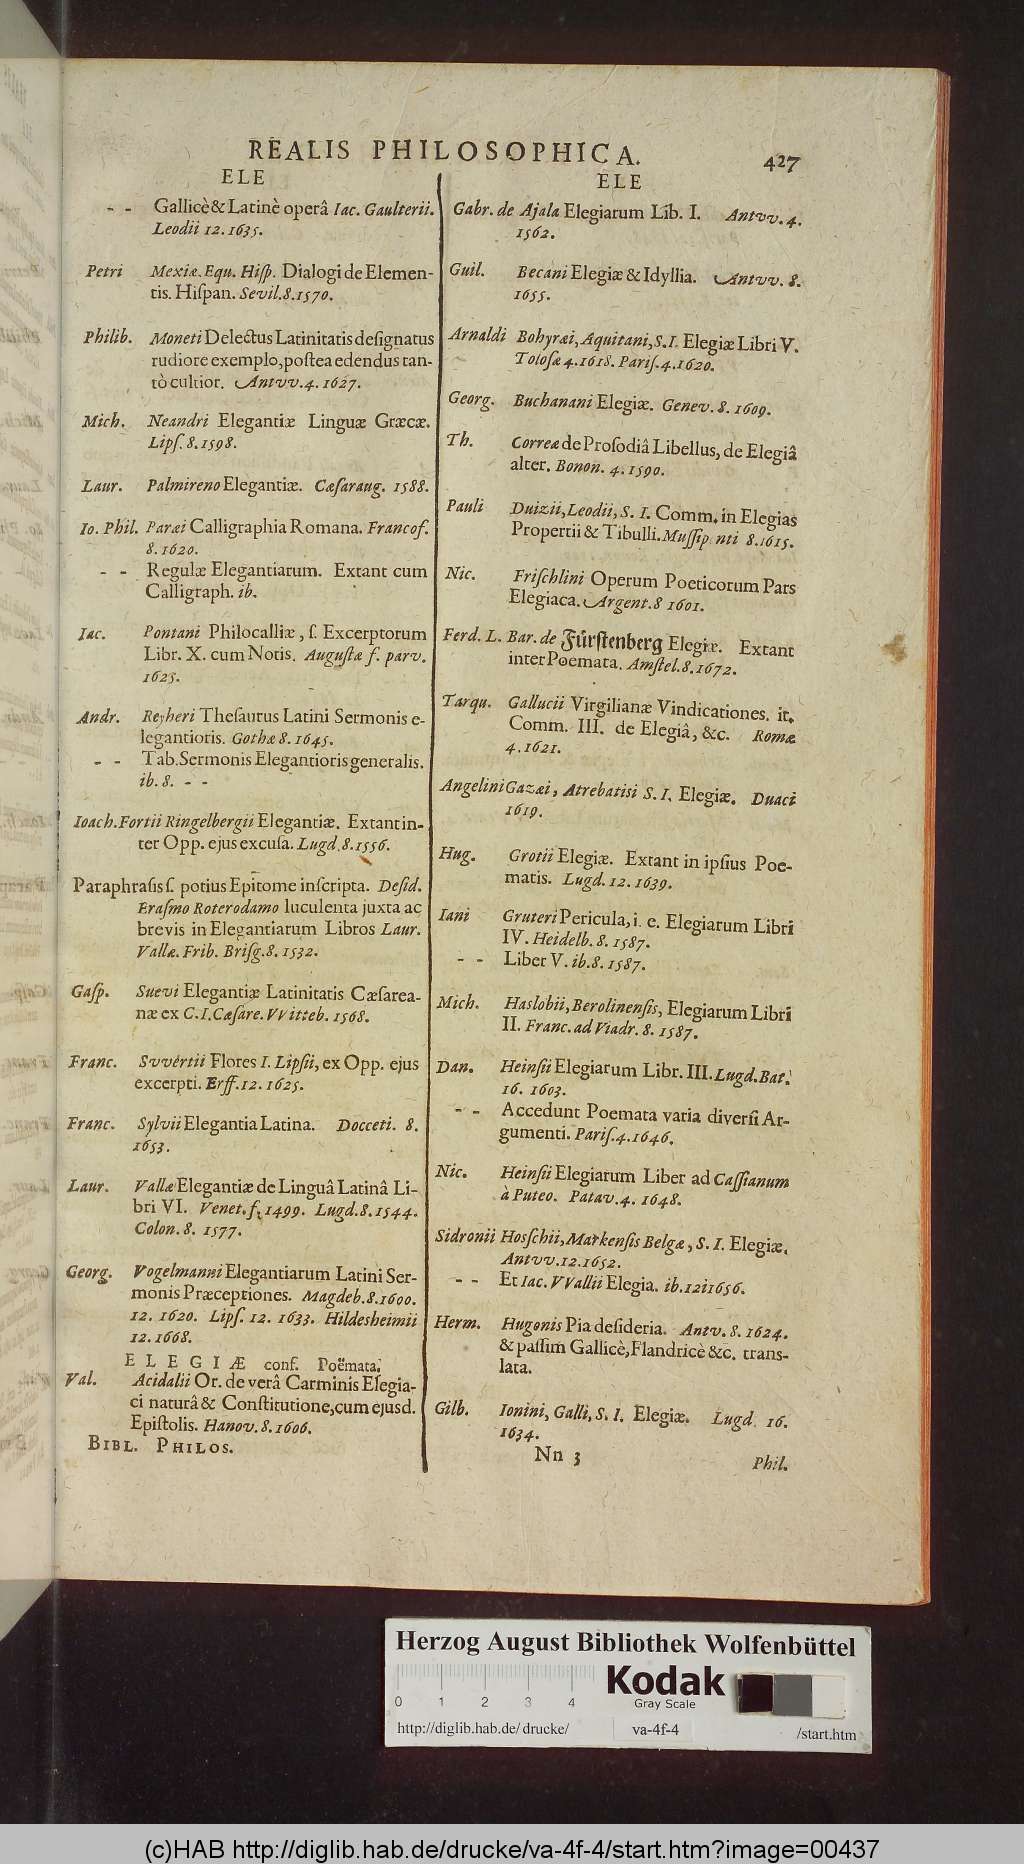 REALIS PHILOSOPHICA.
427
ELE
- - Gallicè & Latinè operâ Iac. Gaulterii.
Leodii 12. 1635.
Petri Mexiæ. Equ. Hiſp. Dialogi de Elemen-
tis. Hiſpan. Sevil. 8. 1570.
Philib. Moneti Delectus Latinitatis deſignatus
rudiore exemplo, poſtea edendus tan-
tò cultior. Antvv. 4. 1627.
Mich. Neandri Elegantiæ Linguæ Græcæ.
Lipſ. 8. 1598.
Laur. Palmireno Elegantiæ. Cæſaraug. 1588.
Io. Phil. Paræi Calligraphia Romana. Francof.
8. 1620.
- - Regulæ Elegantiarum. Extant cum
Calligraph. ib.
Iac. Pontani Philocalliæ, ſ. Excerptorum
Libr. X. cum Notis. Auguſtæ f. parv.
1625.
Andr. Reyheri Theſaurus Latini Sermonis e-
legantioris. Gothæ 8. 1645.
- - Tab. Sermonis Elegantioris generalis.
ib. 8. - -
Ioach. Fortii Ringelbergii Elegantiæ. Extant in-
ter Opp. ejus excuſa. Lugd. 8. 1556.
Paraphraſis ſ. potius Epitome inſcripta. Deſid.
Eraſmo Roterodamo luculenta juxta ac
brevis in Elegantiarum Libros Laur.
Vallæ. Frib. Briſg. 8. 1532.
Gaſp. Suevi Elegantiæ Latinitatis Cæſarea-
næ ex C. I. Cæſare. VVitteb. 1568.
Franc. Svvértii Flores I. Lipſii, ex Opp. ejus
excerpti. Erff. 12. 1625.
Franc. Sylvii Elegantia Latina. Docceti. 8.
1653.
Laur. Vallæ Elegantiæ de Linguâ Latinâ Li-
bri VI. Venet. f. 1499. Lugd. 8. 1544.
Colon. 8. 1577.
Georg. Vogelmanni Elegantiarum Latini Ser-
monis Præceptiones. Magdeb. 8. 1600.
12. 1620. Lipſ. 12. 1633. Hildesheimii
12. 1668.
ELEGIÆ conf. Poëmata.
Val. Acidalii Or. de verâ Carminis Elegia-
ci naturâ & Conſtitutione, cum ejusd.
Epiſtolis. Hanov. 8. 1606.
BIBL. PHILOS.
ELE
Gabr. de Ajala Elegiarum Lib. I. Antvv. 4.
1562.
Guil. Becani Elegiæ & Idyllia. Antvv. 8.
1655.
Arnaldi Bohyræi, Aquitani, S. I. Elegiæ Libri V.
Toloſæ 4. 1618. Pariſ. 4. 1620.
Georg. Buchanani Elegiæ. Genev. 8. 1609.
Th. Correæ de Proſodiâ Libellus, de Elegiâ
alter. Bonon. 4. 1590.
Pauli Duizii, Leodii, S. I. Comm. in Elegias
Propertii & Tibulli. Muſſip nti 8. 1615.
Nic. Friſchlini Operum Poeticorum Pars
Elegiaca. Argent. 8 1601.
Ferd. L. Bar. de Fürſtenberg Elegiæ. Extant
inter Poemata. Amſtel. 8. 1672.
Tarqu. Gallucii Virgilianæ Vindicationes. it.
Comm. III. de Elegiâ, &c. Romæ
4. 1621.
Angelini Gazæi, Atrebatisi S. I. Elegiæ. Duaci
1619.
Hug. Grotii Elegiæ. Extant in ipſius Poe-
matis. Lugd. 12. 1639.
Iani Gruteri Pericula, i. e. Elegiarum Libri
IV. Heidelb. 8. 1587.
- - Liber V. ib. 8. 1587.
Mich. Haslobii, Berolinenſis, Elegiarum Libri
II. Franc. ad Viadr. 8. 1587.
Dan. Heinſii Elegiarum Libr. III. Lugd. Bat.
16. 1603.
- - Accedunt Poemata varia diverſi Ar-
gumenti. Pariſ. 4. 1646.
Nic. Heinſii Elegiarum Liber ad Caſſianum
à Puteo. Patav. 4. 1648.
Sidronii Hosſchii, Markenſis Belgæ, S. I. Elegiæ.
Antvv. 12. 1652.
- - Et Iac. VVallii Elegia. ib. 12 1656.
Herm. Hugonis Pia deſideria. Antv. 8. 1624.
& paſſim Gallicè, Flandricè &c. trans-
lata.
Gilb. Ionini, Galli, S. I. Elegiæ. Lugd 16.
1634.
Nn 3
Phil.
Herzog August Bibliothek Wolfenbüttel
Kodak
Gray Scale
0 1 2 3 4
http://diglib.hab.de/drucke/ va-4f-4 /start.htm
(c)HAB http://diglib.hab.de/drucke/va-4f-4/start.htm?image=00437